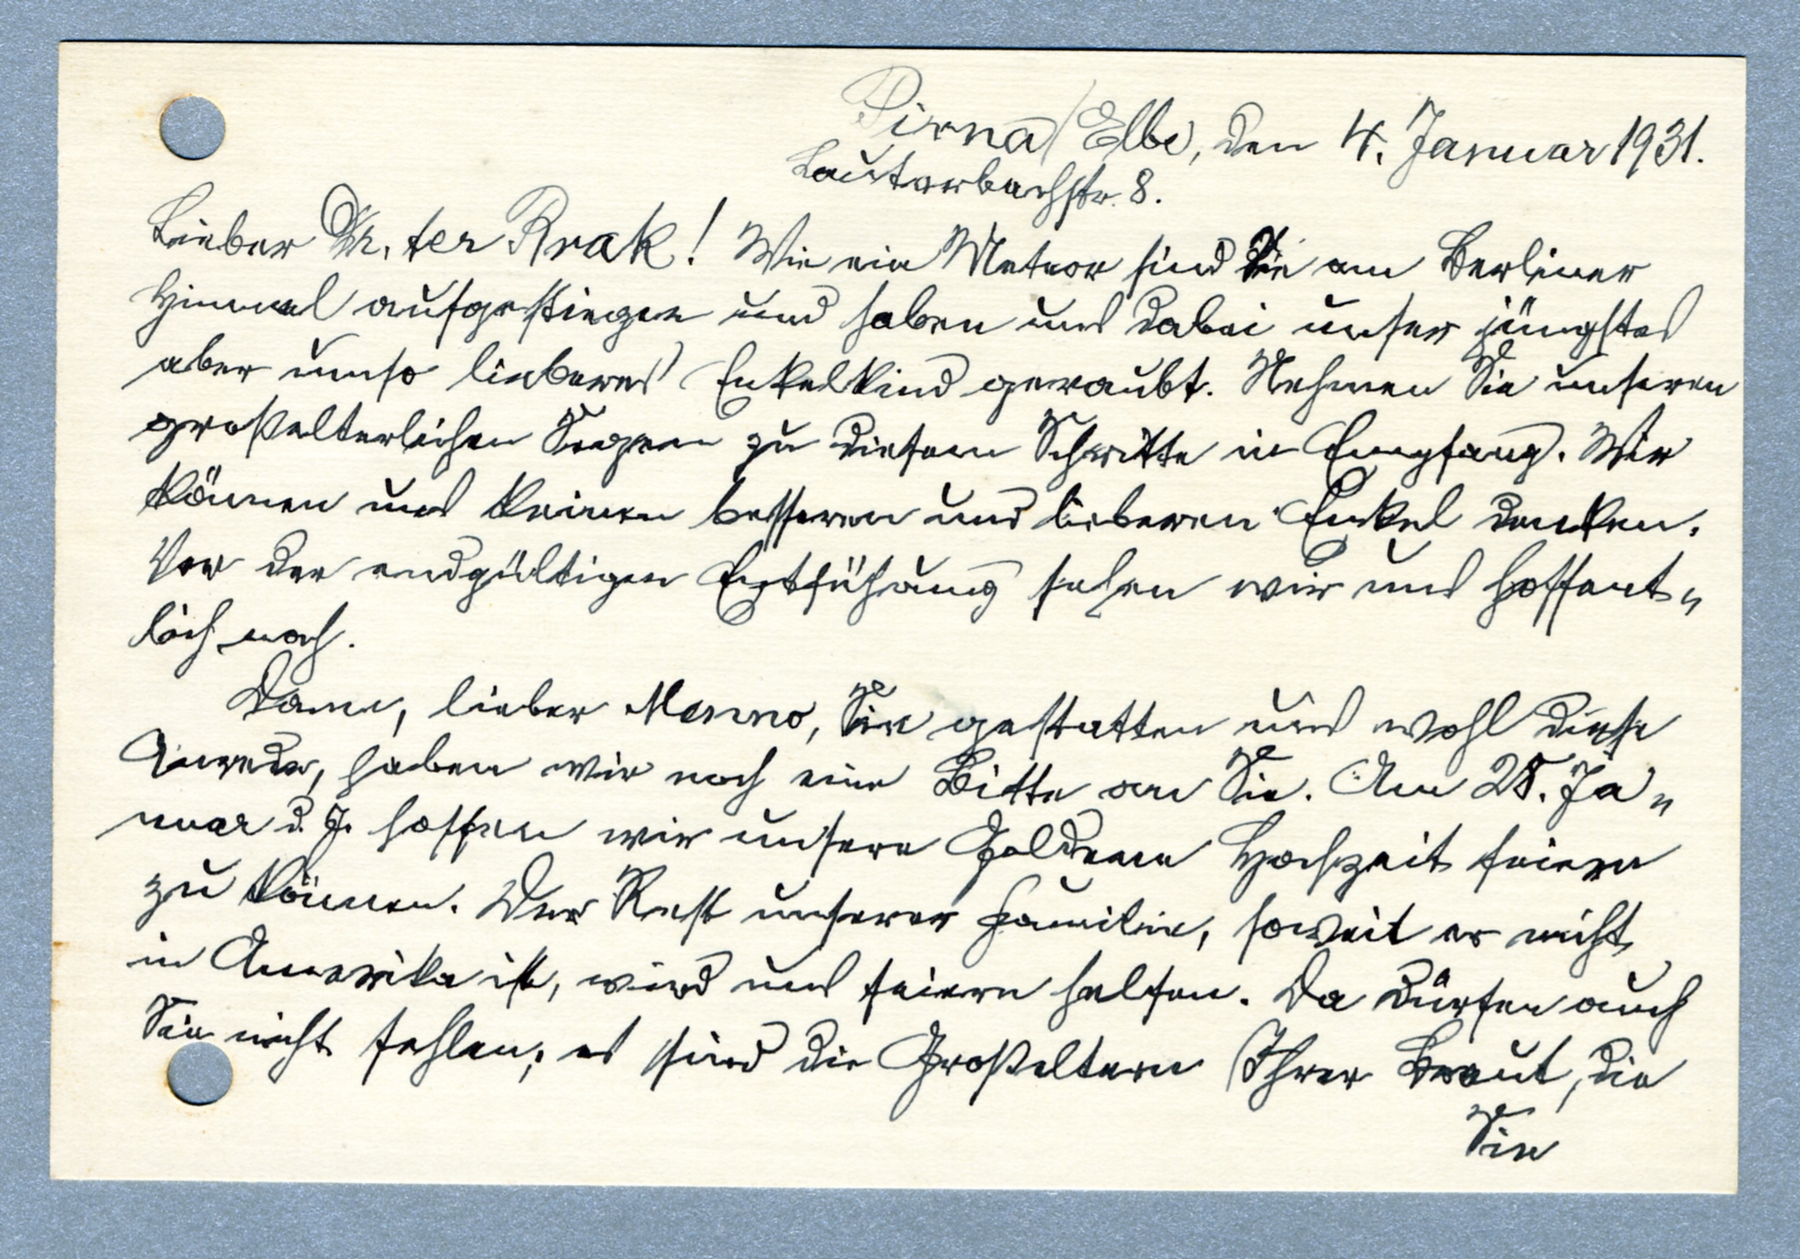 Pirna/Elbe, den 4. Januar 1931.
Lauterbachstr. 8.
Lieber Dr. ter Braak! Wie ein Meteor sind Sie am Berliner
Himmel aufgestiegen und haben uns dabei unser jüngstes
aber umso lieberes Enkelkind geraubt. Nehmen Sie unseren
großelterlichen Segen zu diesem Schritte in Empfang. Wir
können uns keinen besseren und lieberen Enkel denken.
Vor der endgültigen Entführung sehen wir uns hoffent-
lich noch.
Dann, lieber Menno, Sie gestatten uns wohl diese
Anrede, haben wir noch eine Bitte an Sie. Am 28. Ja-
nuar d. J. hoffen wir unsere Goldene Hochzeit feiern
zu können. Der Rest unserer Familie, soweit er nicht
in Amerika ist, wird uns feiern helfen. Da dürfen auch
Sie nicht fehlen; es sind die Großeltern Ihrer Braut, die
Sie